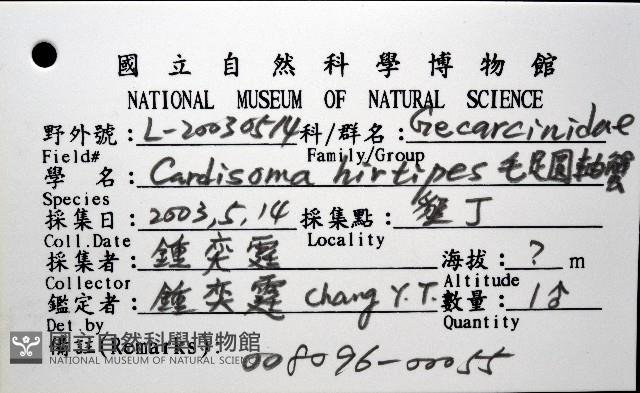 國立自然科學博物館
NATIONAL MUSEUM OF NATURAL SCIENCE
野外號：L-20030514 科/群名：Gecarcinidae
Field# Family/Group
學 名：Cardisoma hirtipes 毛足圓軸蟹
Species
採集日：2003,5,14 採集點：墾丁
Coll.Date Locality
採集者：鍾奕霆 海拔：? m
Collector Altitude
鑑定者：鍾奕霆 Chang Y.T. 數量：1♂
Det.by Quantity
備註(Remarks): 008096-00055
國立自然科學博物館
NATIONAL MUSEUM OF NATURAL SCIENCE